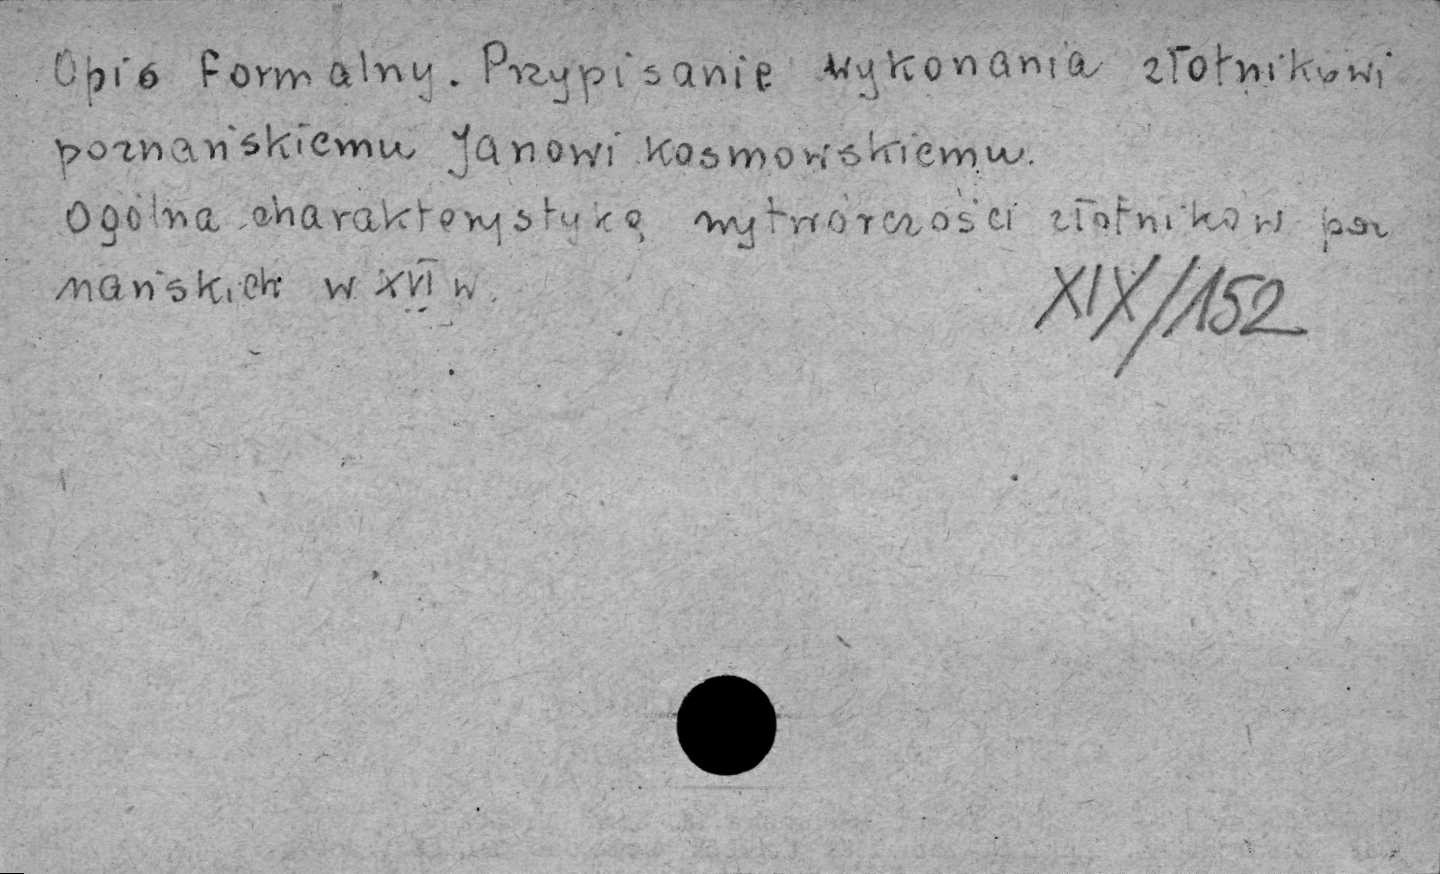 Opis formalny. Przypisanie wykonania złotnikowi
poznańskiemu Janowi Kosmowskiemu.
Ogólna charakterystykę wytwórczości złotników poz
nańskich w XVI w.
XIX/152